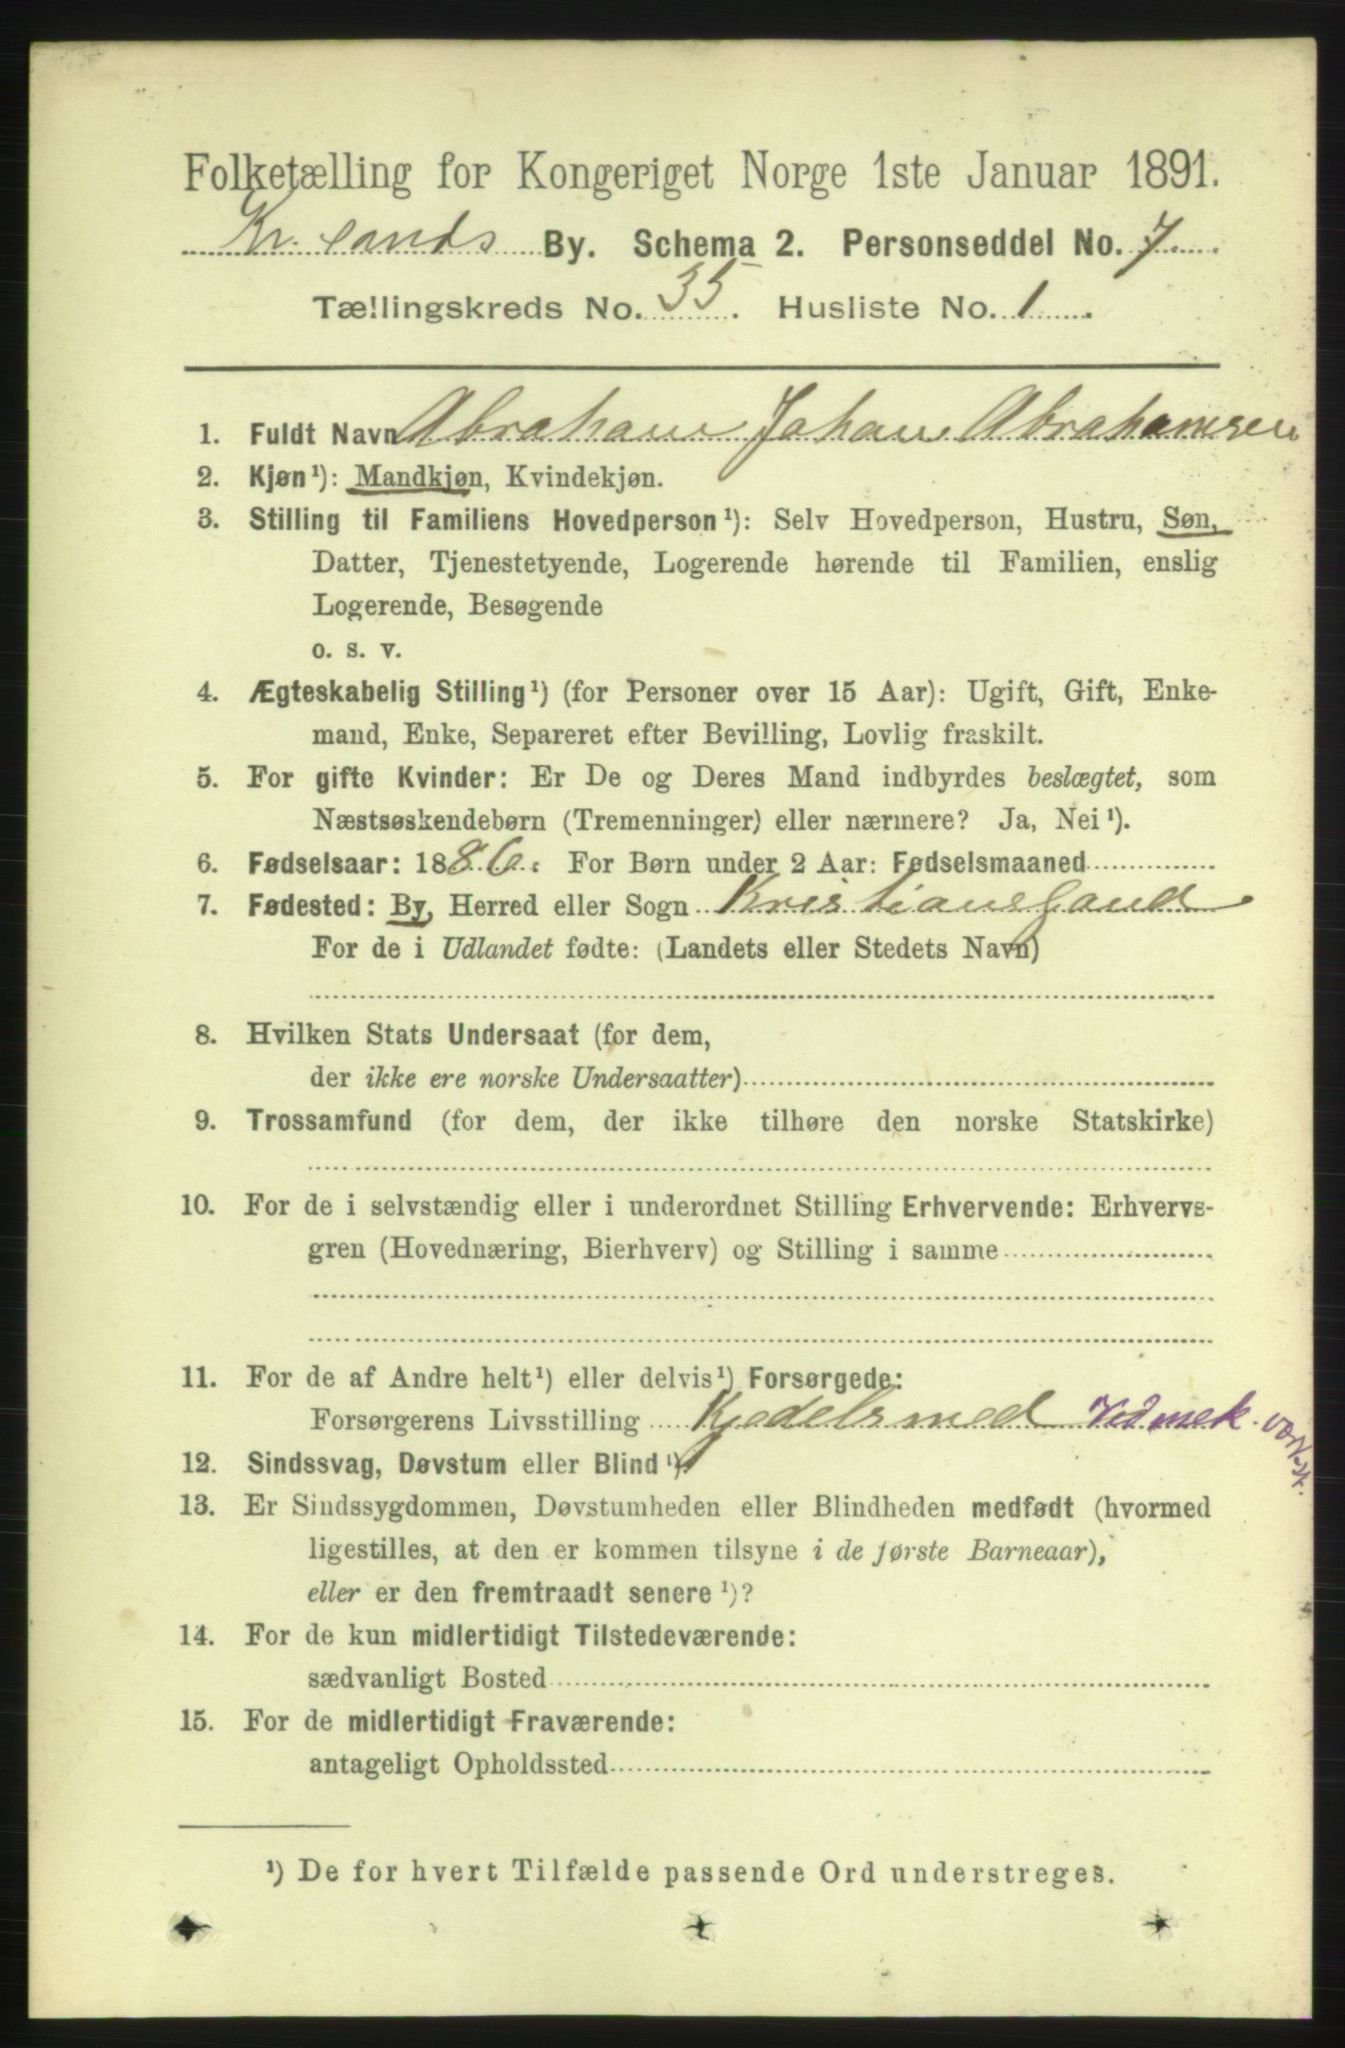 Folketælling for Kongeriget Norge 1ste Januar 1891.
Kr.sands By. Schema 2. Personseddel No. 7
Tællingskreds No. 35. Husliste No. 1.
1. Fuldt Navn Abraham Johan Abrahamsen
2. Kjøn¹): Mandkjøn, Kvindekjøn.
3. Stilling til Familiens Hovedperson¹): Selv Hovedperson, Hustru, Søn,
Datter, Tjenestetyende, Logerende hørende til Familien, enslig
Logerende, Besøgende
o. s. v.
4. Ægteskabelig Stilling¹) (for Personer over 15 Aar): Ugift, Gift, Enke-
mand, Enke, Separeret efter Bevilling, Lovlig fraskilt.
5. For gifte Kvinder: Er De og Deres Mand indbyrdes beslægtet, som
Næstsøskendebørn (Tremenninger) eller nærmere? Ja, Nei¹).
6. Fødselsaar: 1886. For Børn under 2 Aar: Fødselsmaaned
7. Fødested: By, Herred eller Sogn Kristianssand
For de i Udlandet fødte: (Landets eller Stedets Navn)
8. Hvilken Stats Undersaat (for dem,
der ikke ere norske Undersaatter)
9. Trossamfund (for dem, der ikke tilhøre den norske Statskirke)
10. For de i selvstændig eller i underordnet Stilling Erhvervende: Erhvervs-
gren (Hovednæring, Bierhverv) og Stilling i samme
11. For de af Andre helt¹) eller delvis¹) Forsørgede:
Forsørgerens Livsstilling Kjedelsmed Ved mek. værkst.
12. Sindssvag, Døvstum eller Blind¹)
13. Er Sindssygdommen, Døvstumheden eller Blindheden medfødt (hvormed
ligestilles, at den er kommen tilsyne i de første Barneaar),
eller er den fremtraadt senere¹)?
14. For de kun midlertidigt Tilstedeværende:
sædvanligt Bosted
15. For de midlertidigt Fraværende:
antageligt Opholdssted
¹) De for hvert Tilfælde passende Ord understreges.